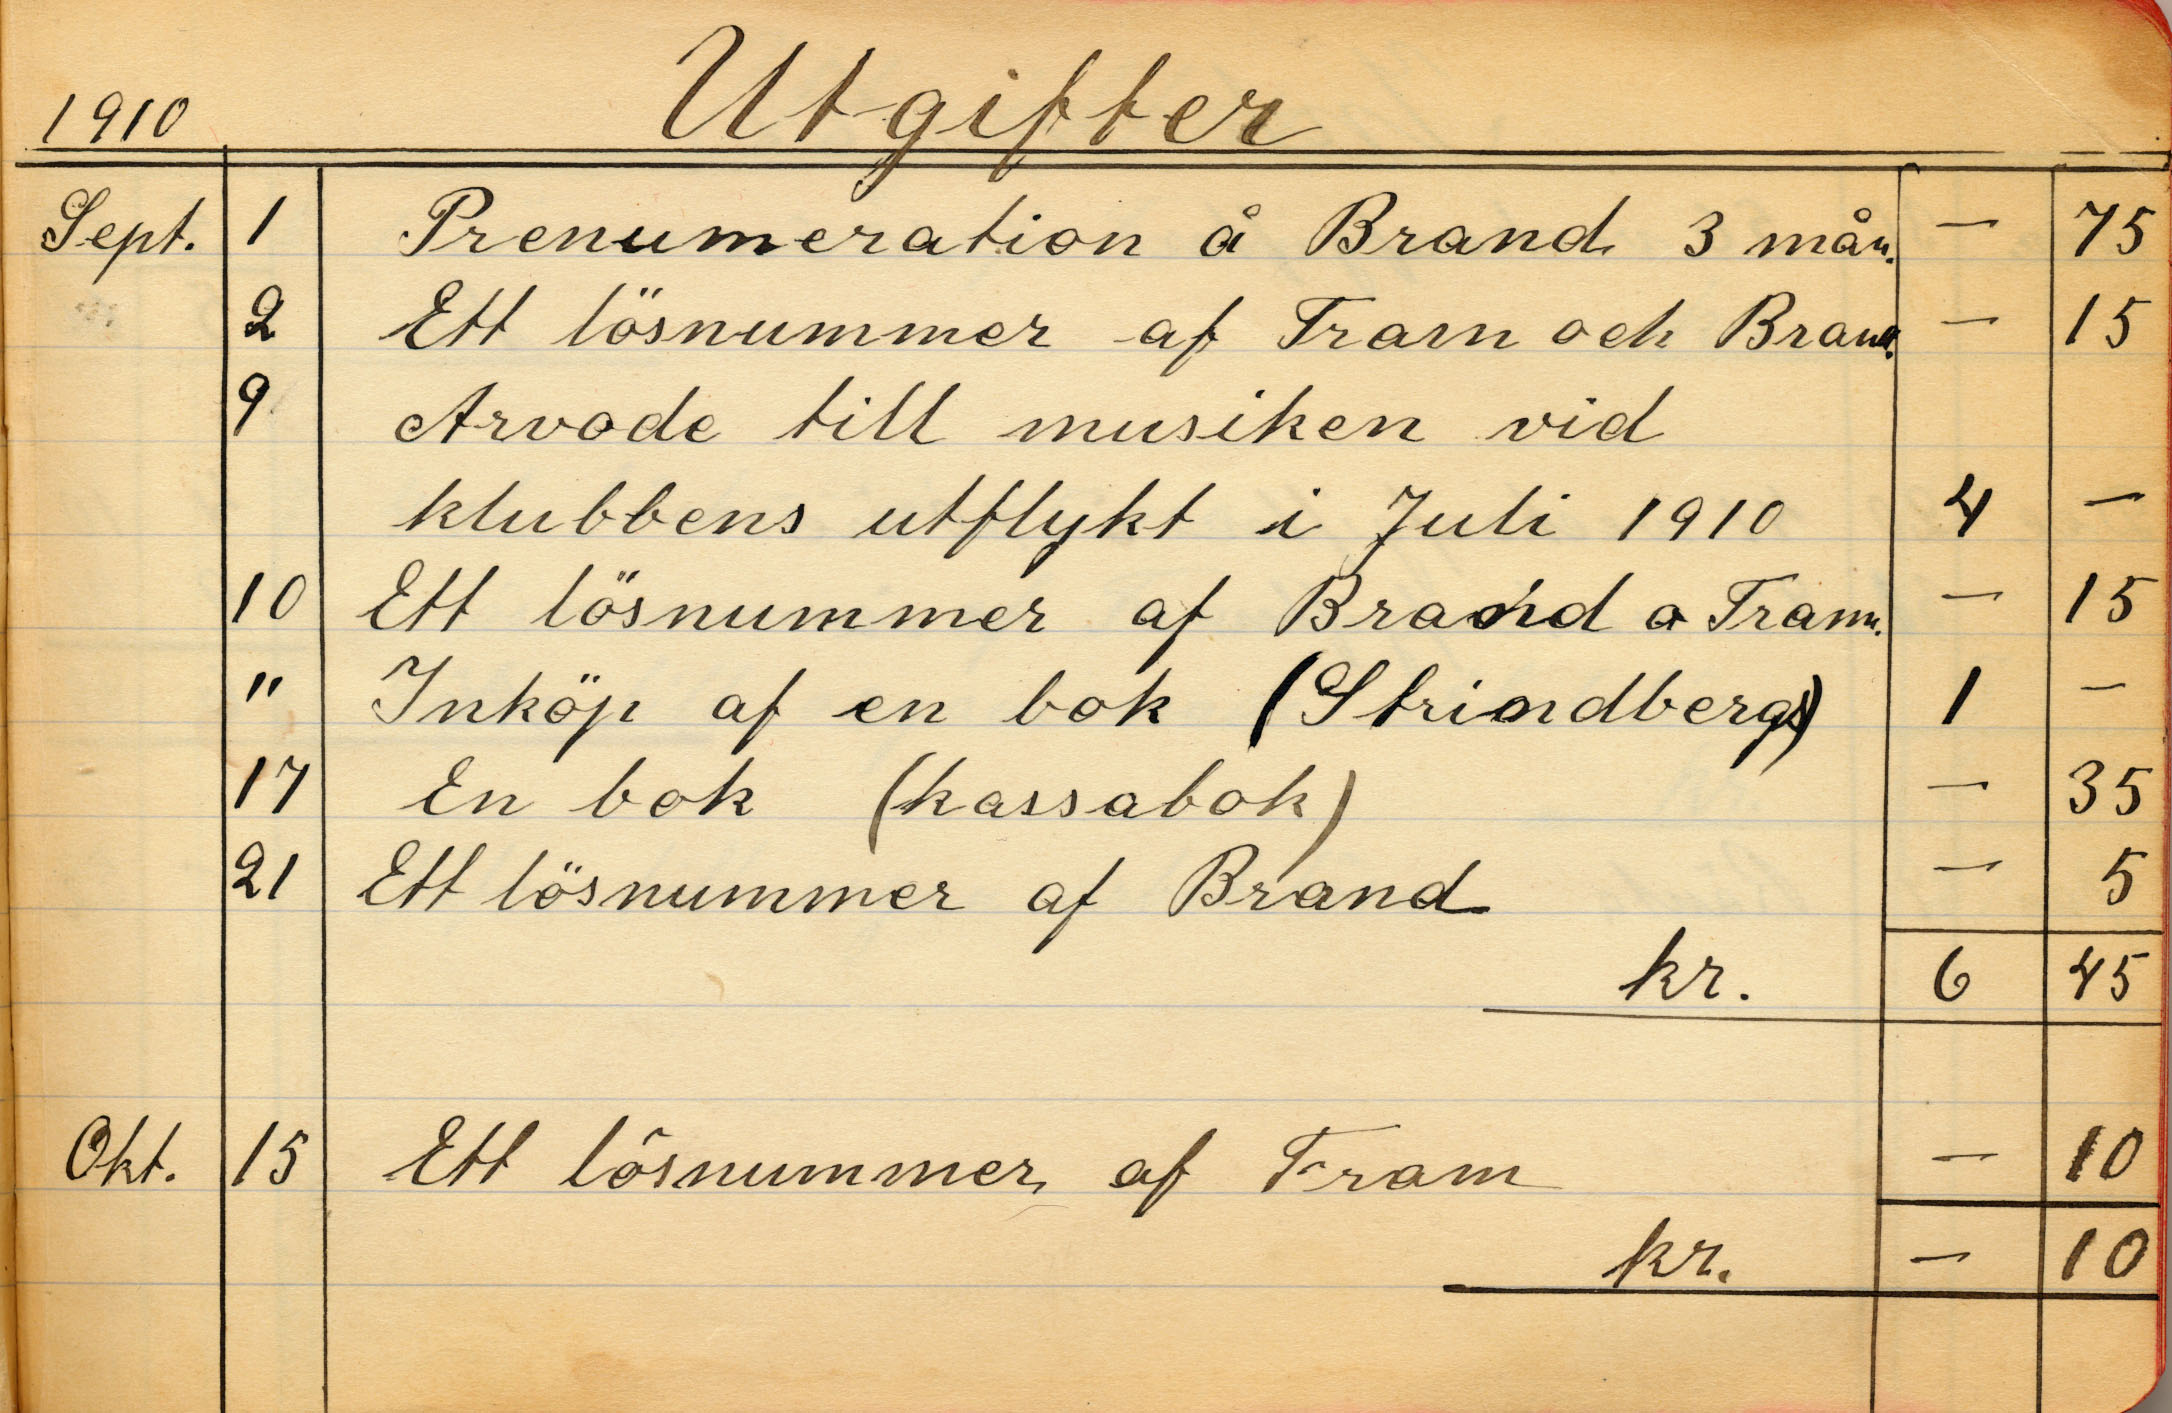 1910 Utgifter
Sept. 1 Prenumeration å Brand 3 mån. — 75
2 Ett lösnummer af Fram och Brand. — 15
9 Arvode till musiken vid
klubbens utflykt i Juli 1910 4 —
10 Ett lösnummer af Brand o Fram. — 15
" Inköp af en bok (Strindbergs) 1 —
17 En bok (kassabok) — 35
21 Ett lösnummer af Brand — 5
kr. 6 45
Okt. 15 Ett lösnummer af Fram — 10
kr. — 10